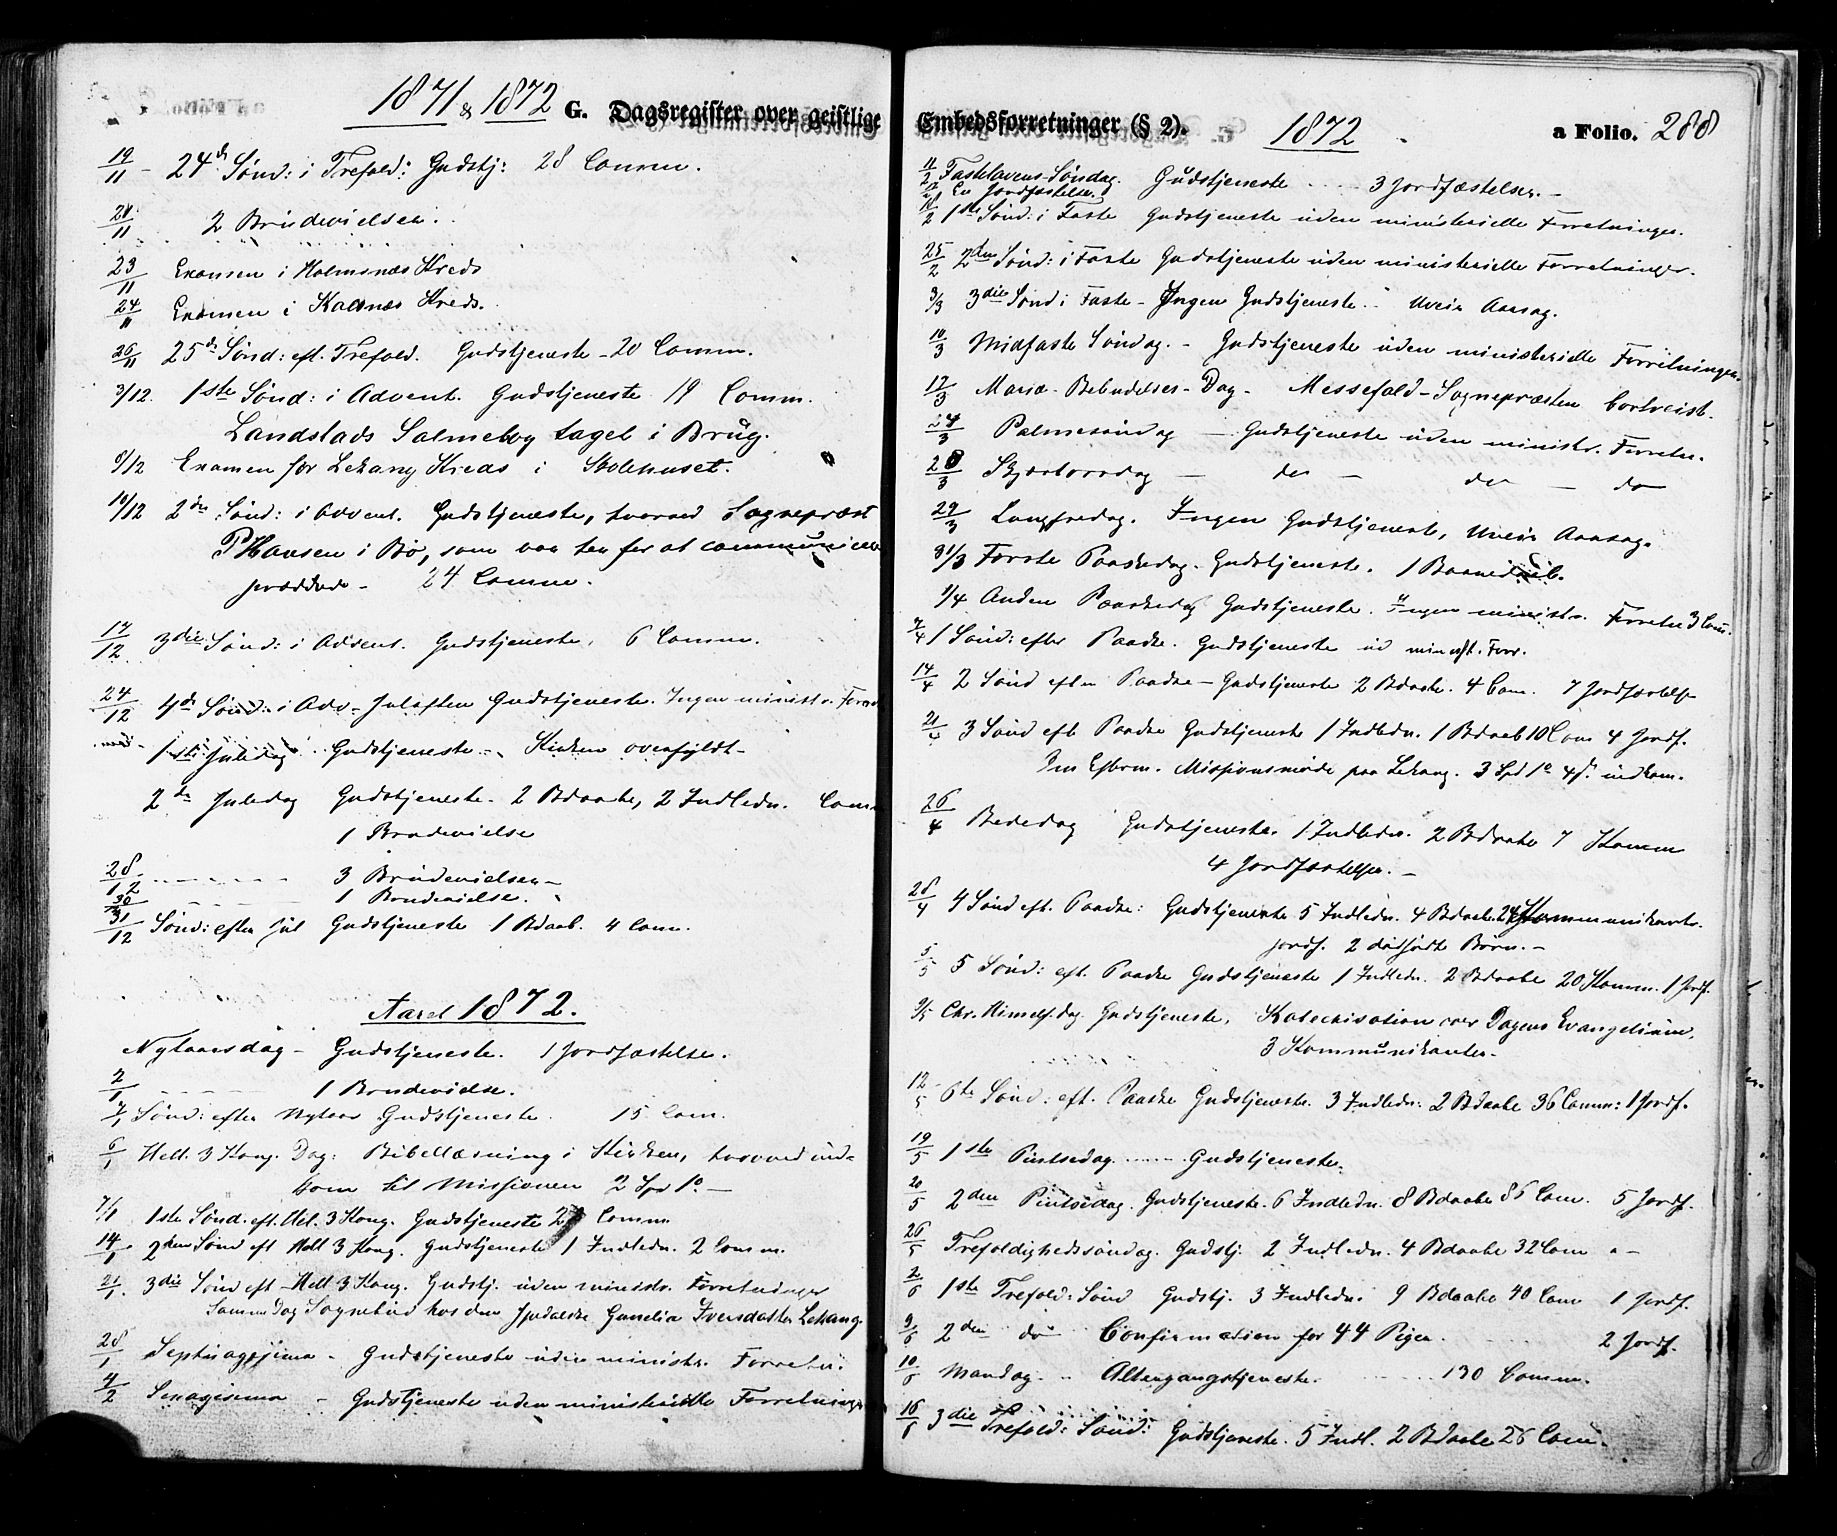 1871 & 1872 G. Dagsregister over geistlige
19/11 - 24de Sønd: i Trefold: Gudstj: 28 Comm.
21/11 2 Brudevielser.
23/11 Examen i Holmsnæs Kreds
24/11 Examen i Kalsnæs Kreds.
26/11 25de Sønd: eft. Trefold. Gudstjeneste - 20 Comm.
3/12. 1ste Sønd: i Advent. Gudstjeneste 19 Comm.
Landstads Salmebog taget i Brug.
8/12 Examen for Lekang Kreds i Skolehuset.
10/12 2den Sønd: i Advent. Gudstjeneste, hvorved Sognepræst
P Hansen i Bø, som var her for at communicere
prædikede - 24 Comm.
17/12 3die Sønd: i Advent. Gudstjeneste. 6 Comm.
24/12 4de Sønd: i Adv - Juleaften Gudstjeneste. Ingen ministr. Forretn
1ste Juledag Gudstjeneste - Kirken overfyldt -
2den Juledag Gudstjeneste. 2 Bdaabe, 2 Indledn. Comm
1 Brudevielse
28/12 - - - - 3 Brudevielser -
30/12 - - - - 1 Brudevielse.
31/12 Sønd: efter Jul Gudstjeneste 1 Bdaab. 4 Com.
Aaret 1872.
Nytaarsdag - Gudstjeneste. 1 Jordfæstelse.
2/1 - - - - 1 Brudevielse.
Sønd: efter Nytaar Gudstjeneste. 15 Com.
6/1 Hell. 3 Kong. Dag: Bibellæsning i Kirken, hvorved ind-
kom til Missionen 2 Spd 1º -
7/1 1ste Sønd. eft. Hel. 3 Kong. Gudstjeneste Comm
14/1 2den Sønd eft Hell 3 Kong. Gudstjeneste 1 Indledn. 2 Comm.
21/1 3die Sønd eft - Hell 3 Kong. Gudstj. uden ministr. Forretninger
Samme Dag Sognebud hos den Gunelia Iversdatter Lekang.
28/1 Septuagesima - Gudstjeneste uden ministr. Forretn.
4/2 Sexagesima - Gudstjeneste uden ministerielle Forretninger
Embedsforretninger (§ 2). 1872 a Folio. 288
11/2 Fastelavens-Søndag. Gudstjeneste - - - 3 Jordfæstelser. -
En Jordfæstelse
18/2 1ste Sønd: i Faste Gudstjeneste uden ministerielle Forretninger.
25/2 2den Sønd: i Faste Gudstjeneste uden ministerielle Forretninger.
3/3 3die Sønd i Faste - Ingen Gudstjeneste - Uveir Aarsag.
10/3 Midfaste Søndag. - Gudstjeneste uden ministerielle Forretninger.
17/3 Mariæ - Bebudelses - Dag - Messefald - Sognepræsten bortreist.
24/3 Palmesøndag - Gudstjeneste uden ministr. Forretn.
28/3 Skjærtorsdag - do - do - do
29/3 Langfredag. Ingen Gudstjeneste, Uveir Aarsag.
31/3 Første Paaskedag. Gudstjeneste. 1 Barnedaab.
1/4 Anden Paaskedag Gudstjeneste. Ingen ministr. Forretn 3 Com.
7/4 1 Sønd: efter Paaske. Gudstjeneste ud minist. Forr.
14/4 2 Sønd efter Paaske - Gudstjeneste 2 Bdaabe. 4 Com. 7 Jordfæstelser
21/4 3 Sønd eft Paaske Gudstjeneste 1 Indledn. 1 Bdaab 10 Com 4 Jordf.
Om Efterm. Missionsmøde paa Lekang. 3 Spd 1º 4s. indkom.
26/4 Bededag Gudstjeneste. 1 Indledn. 2 Bdaabe 7 Komm
4 Jordfæstelser. -
28/4 4 Sønd eft. Paaske: Gudstjeneste 5 Indledn. 4 Bdaabe. 24 Kommunikanter.
Jordf. 2 dødfødte Børn. -
5/5 5 Sønd: eft. Paaske Gudstjeneste 1 Indledn. 2 Bdaabe 20 Komm. 1 Jordf.
9/5 Chr. Himmelf. dag Gudstjeneste, Katechisation over Dagens Evangelium,
3 Kommunikanter.
12/5 6te Sønd: eft. Paaske Gudstjeneste. 3 Indledn: 2 Bdaabe 36 Comm: 1 Jordf.
19/5 1ste Pintsedag - - - Gudstjeneste.
20/5 2den Pintsedag. Gudstjeneste. 6 Indledn. 8 Bdaabe 86 Com. 5 Jordf.
26/5 Trefoldighedssøndag. Gudstj. 2 Indledn. 4 Bdaabe 32 Com
2/6 1ste Trefold: Sønd Gudstj. 3 Indledn. 9 Bdaabe 40 Com 1 Jordf.
9/6 2den do Confirmation for 44 Piger. 2 Jordf.
10/6 Mandag. - Altergangstjeneste. - - - 130 Comm.
16/6 3die Trefold: Sønd: Gudstjeneste. 5 Indl. 2 Bdaabe 26 Com.